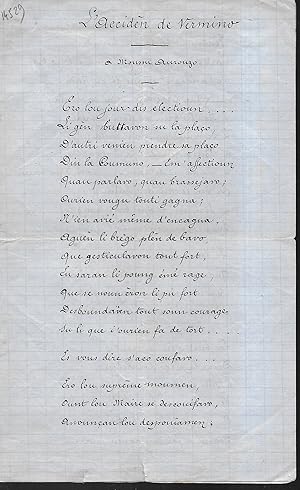 14529
L'Acciden de Vermino
A Moussu Aurouzo.
Ero lou jour dis eleicioun, ...
Li gèn buttavon su la plaço,
D'autri venien prendre sa plaço
Din la Coumuno, — Em'affecioun
Quau parlavo, quau brassejavo;
Aurien vougu touti gagna;
N'en avié même d'encagna,
Aguèn li brégo plen de bavo
Que gesticulavon tout fort,
En saran li poung émé rage;
Que se nounèron li pu fort
Desboundavon tout soun courage
Su li que i'ourien fa de tort ...
Es vous dire s'aco coufavo ...
Ero lou suprème moumen,
Ount lou Maire se dessoufavo,
Anounçan lou despouiamen;